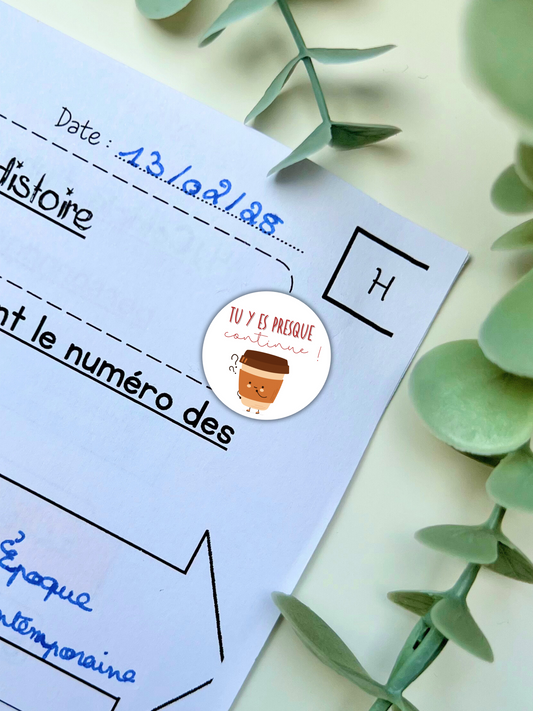 Date : 13/02/28
Histoire
H
TU Y ES PRESQUE
continue !
nt le numéro des
Époque
ntemporaine